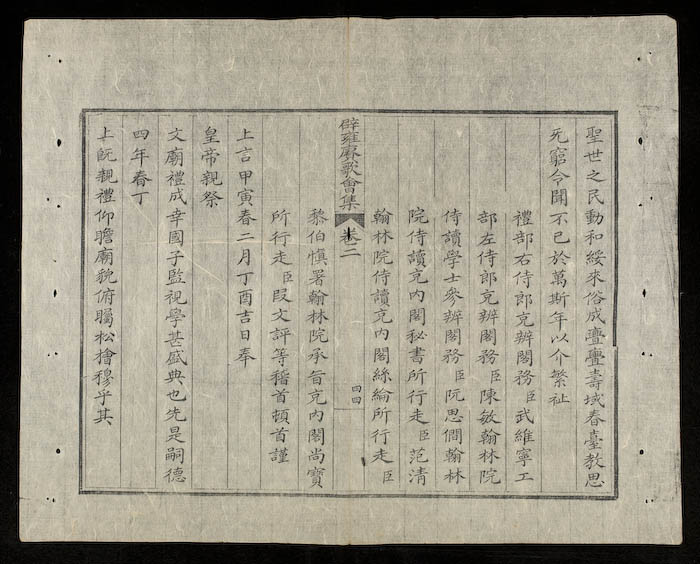 聖世之民動和綏來俗成亹亹壽域春臺教思
旡窮令聞不已於萬斯年以介繁祉
禮部右侍郎充辦閣務臣武維寧工
部左侍郎充辦閣務臣陳敏翰林院
侍讀學士參辦閣務臣阮思僩翰林
院侍讀充內閣秘書所行走臣范清
翰林院侍讀充內閣絲綸所行走臣
辟雍賡歌會集 卷二 四四
黎伯慎署翰林院承旨充內閣尚寶
所行走臣段文評等稽首頓首謹
上言甲寅春二月丁酉吉日奉
皇帝親祭
文廟禮成幸國子監視學甚盛典也先是嗣德
四年春丁
上旣親禮仰瞻廟貌俯矚松檜穆乎其